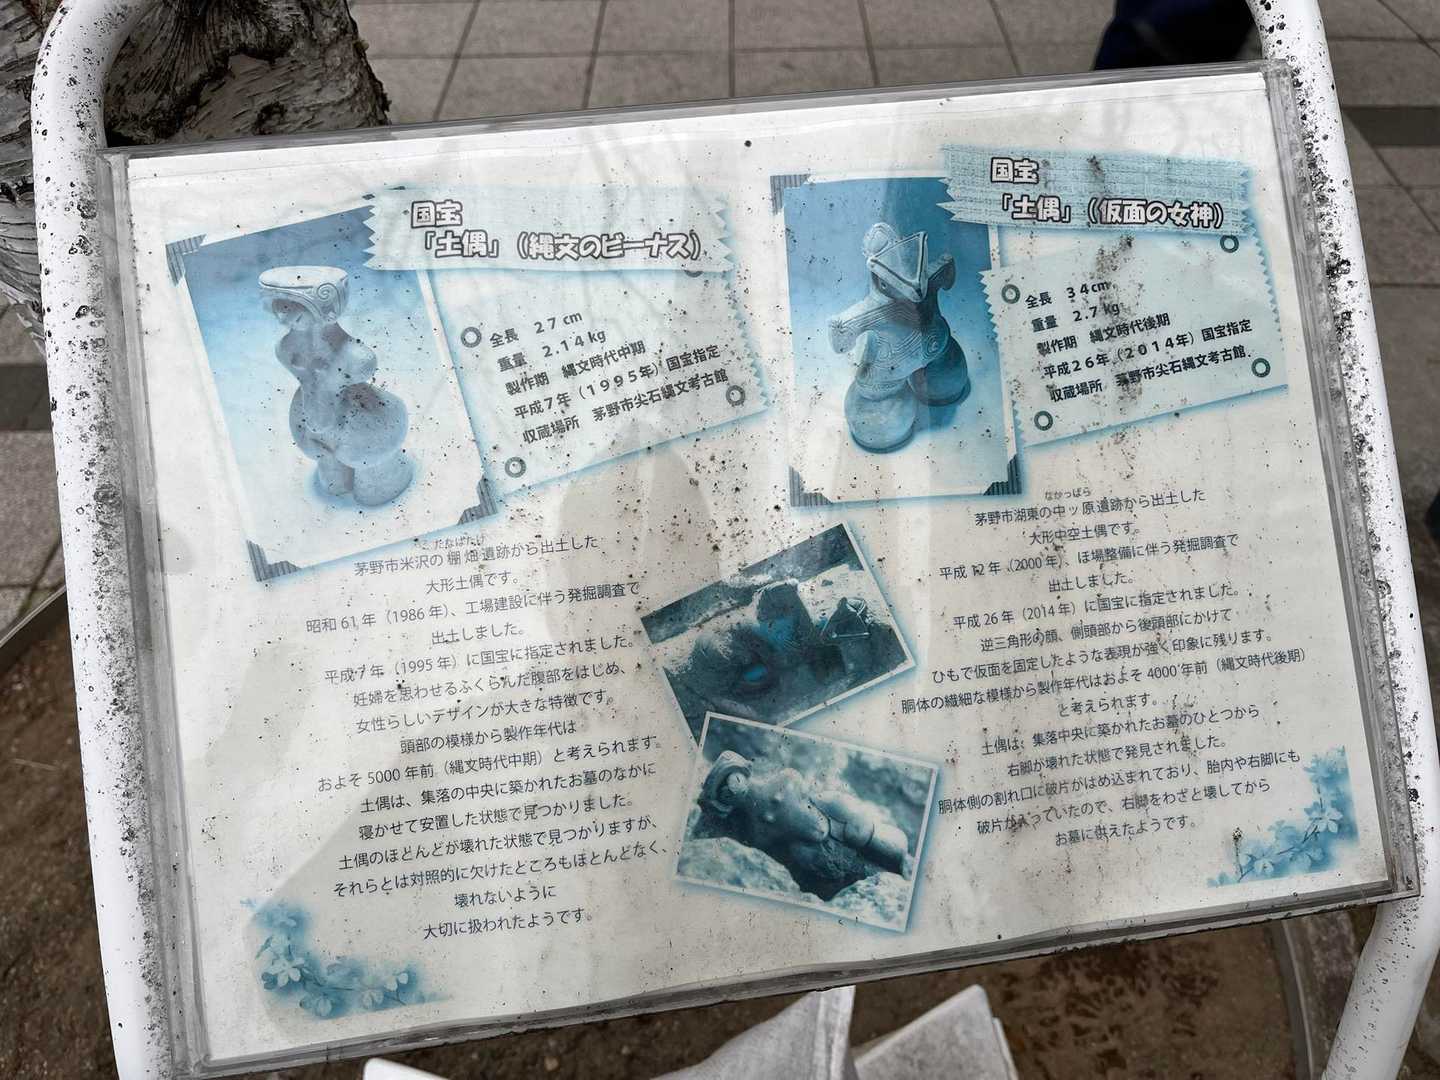 国宝
「土偶」（縄文のビーナス）
全長　２７cm
重量　２.１４kg
製作期　縄文時代中期
平成７年（１９９５年）国宝指定
収蔵場所　茅野市尖石縄文考古館
たなばたけ
茅野市米沢の棚畑遺跡から出土した
大形土偶です。
昭和61年（1986年）、工場建設に伴う発掘調査で
出土しました。
平成7年（1995年）に国宝に指定されました。
妊婦を思わせるふくらんだ腹部をはじめ、
女性らしいデザインが大きな特徴です。
頭部の模様から製作年代は
およそ5000年前（縄文時代中期）と考えられます。
土偶は、集落の中央に築かれたお墓のなかに
寝かせて安置した状態で見つかりました。
土偶のほとんどが壊れた状態で見つかりますが、
それらとは対照的に欠けたところもほとんどなく、
壊れないように
大切に扱われたようです。
国宝
「土偶」（仮面の女神）
全長　３４cm
重量　２.７kg
製作期　縄文時代後期
平成２６年（２０１４年）国宝指定
収蔵場所　茅野市尖石縄文考古館
なかっぱら
茅野市湖東の中ッ原遺跡から出土した
大形中空土偶です。
平成12年（2000年）、ほ場整備に伴う発掘調査で
出土しました。
平成26年（2014年）に国宝に指定されました。
逆三角形の顔、側頭部から後頭部にかけて
ひもで仮面を固定したような表現が強く印象に残ります。
胴体の繊細な模様から製作年代はおよそ4000年前（縄文時代後期）
と考えられます。
土偶は、集落中央に築かれたお墓のひとつから
右脚が壊れた状態で発見されました。
胴体側の割れ口に破片がはめ込まれており、胎内や右脚にも
破片が入っていたので、右脚をわざと壊してから
お墓に供えたようです。